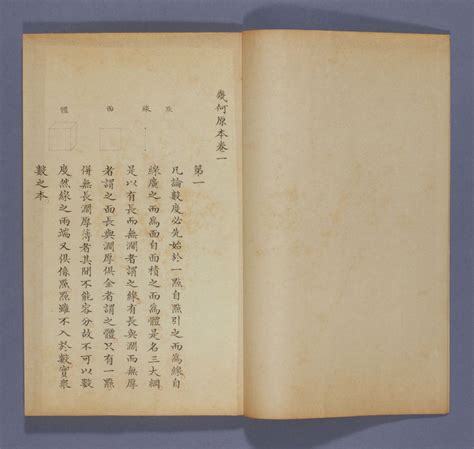 幾何原本卷一
點
線
面
體
第一
凡論數度必先始於一點自點引之而為線自
線廣之而為面自面積之而為體是名三大綱
是以有長而無濶者謂之線有長與濶而無厚
者謂之面長與濶厚俱全者謂之體只有一點
併無長濶厚薄者其間不能容分故不可以數
度然線之兩端又俱像點點雖不入於數實衆
數之本